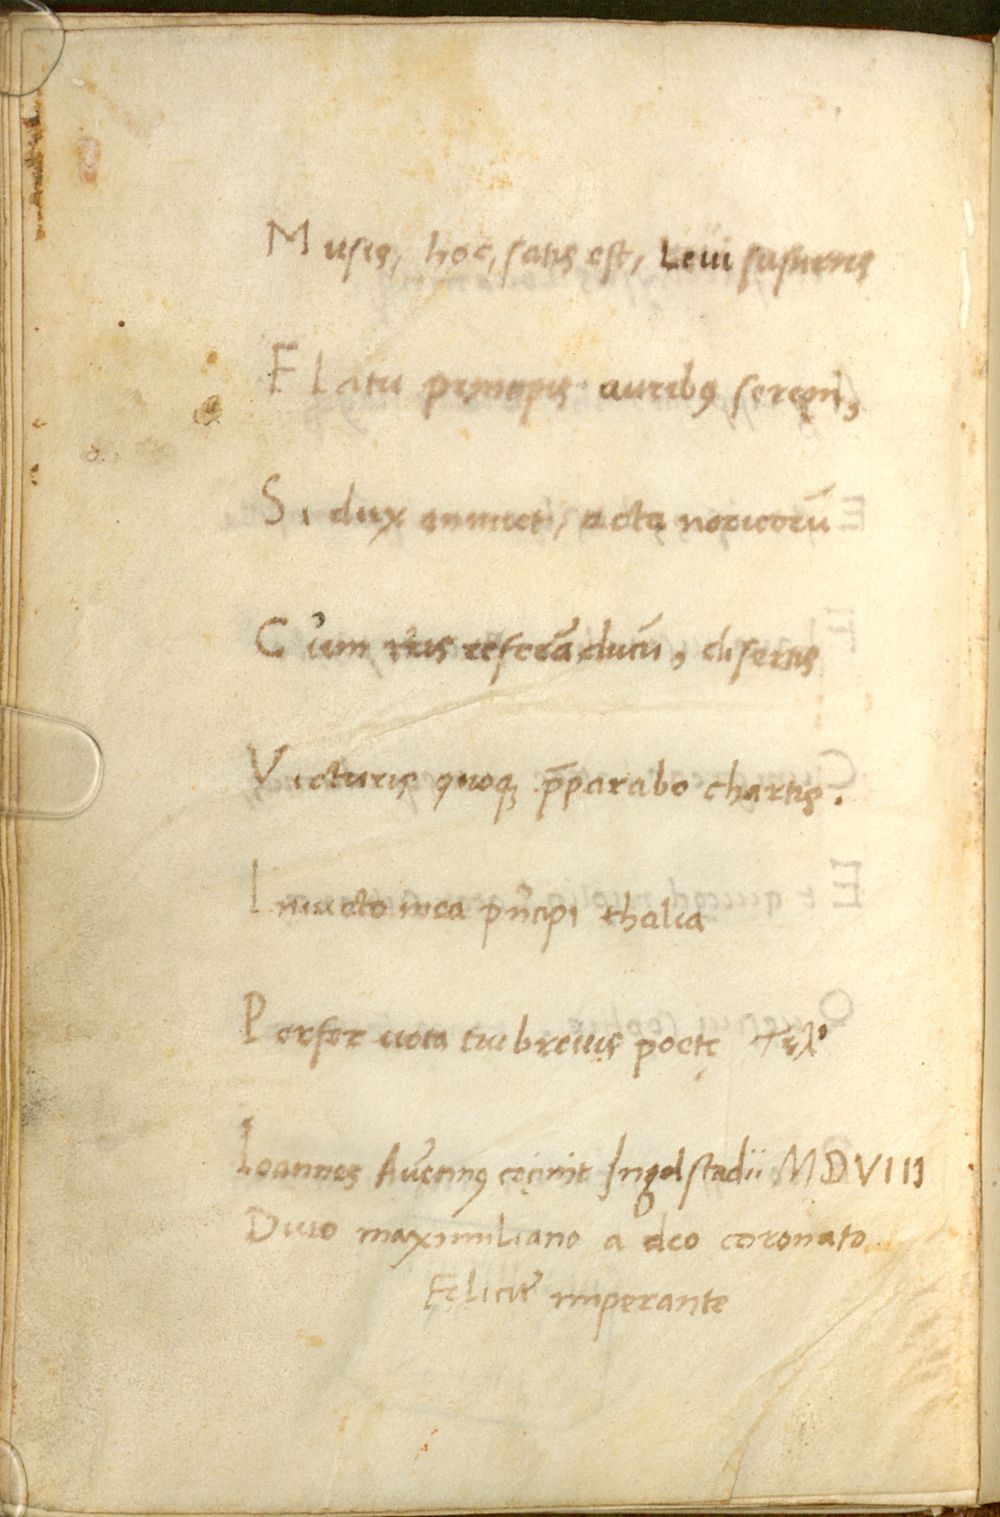 Musis, hoc, satis est, Leui susurris
Flatu principis auribꝰ sereni,
Si dux annuet, acta noricorū
Cum referā ducū, disertis
Victuris quoqꝫ p̄parabo chartis.
Inuicto mea pñcipi thalia
Perfer uota tui breuis poetę Τελ
Ioannes Auētinꝰ cęcinit Ingolstadii MDVIII
Diuo maximiliano a deo coronato
Felicit᷑ imperante